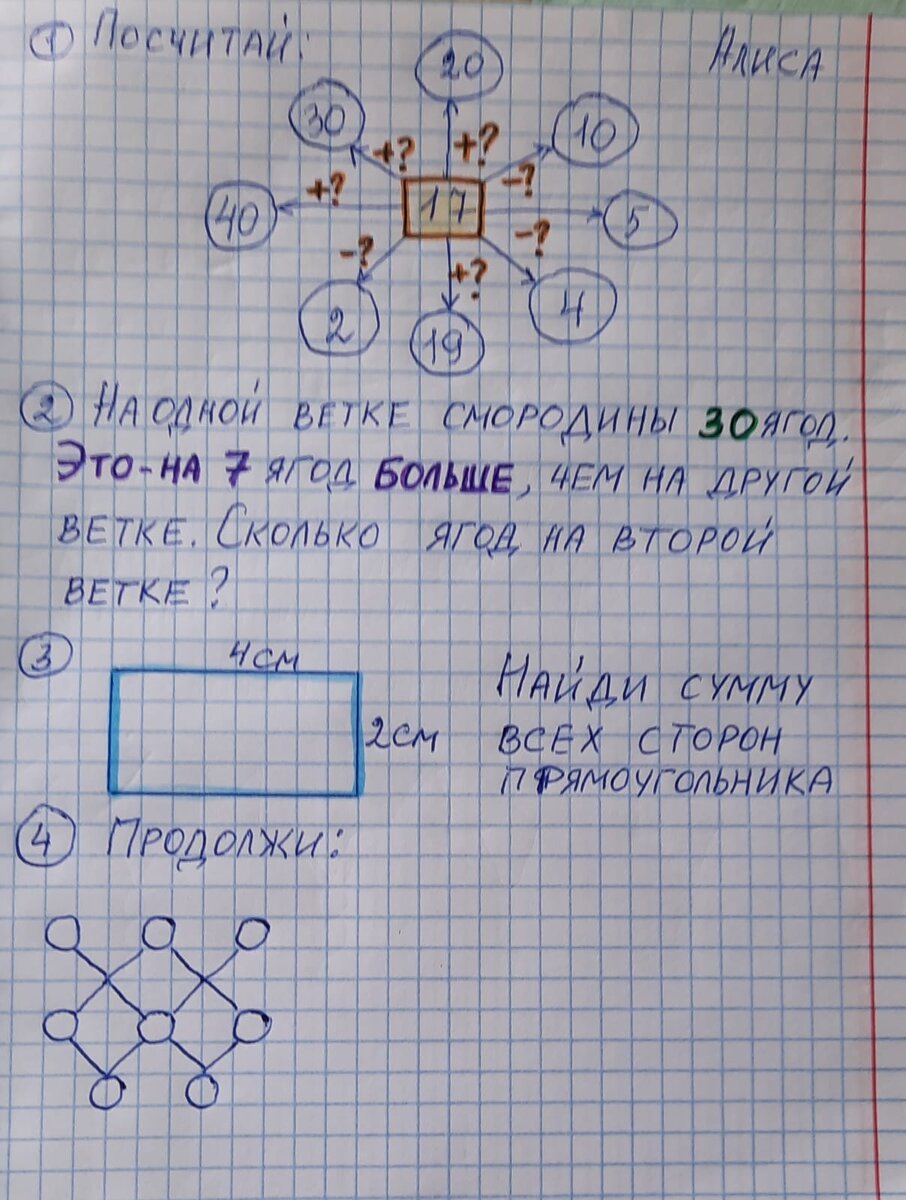 ① Посчитай:
Алиса
20
30
10
+?
+?
-?
+?
40
17
5
-?
-?
+?
2
19
4
② На одной ветке смородины 30 ягод.
Это - на 7 ягод больше, чем на другой
ветке. Сколько ягод на второй
ветке?
③
4 см
2 см
Найди сумму
всех сторон
прямоугольника
④ Продолжи: